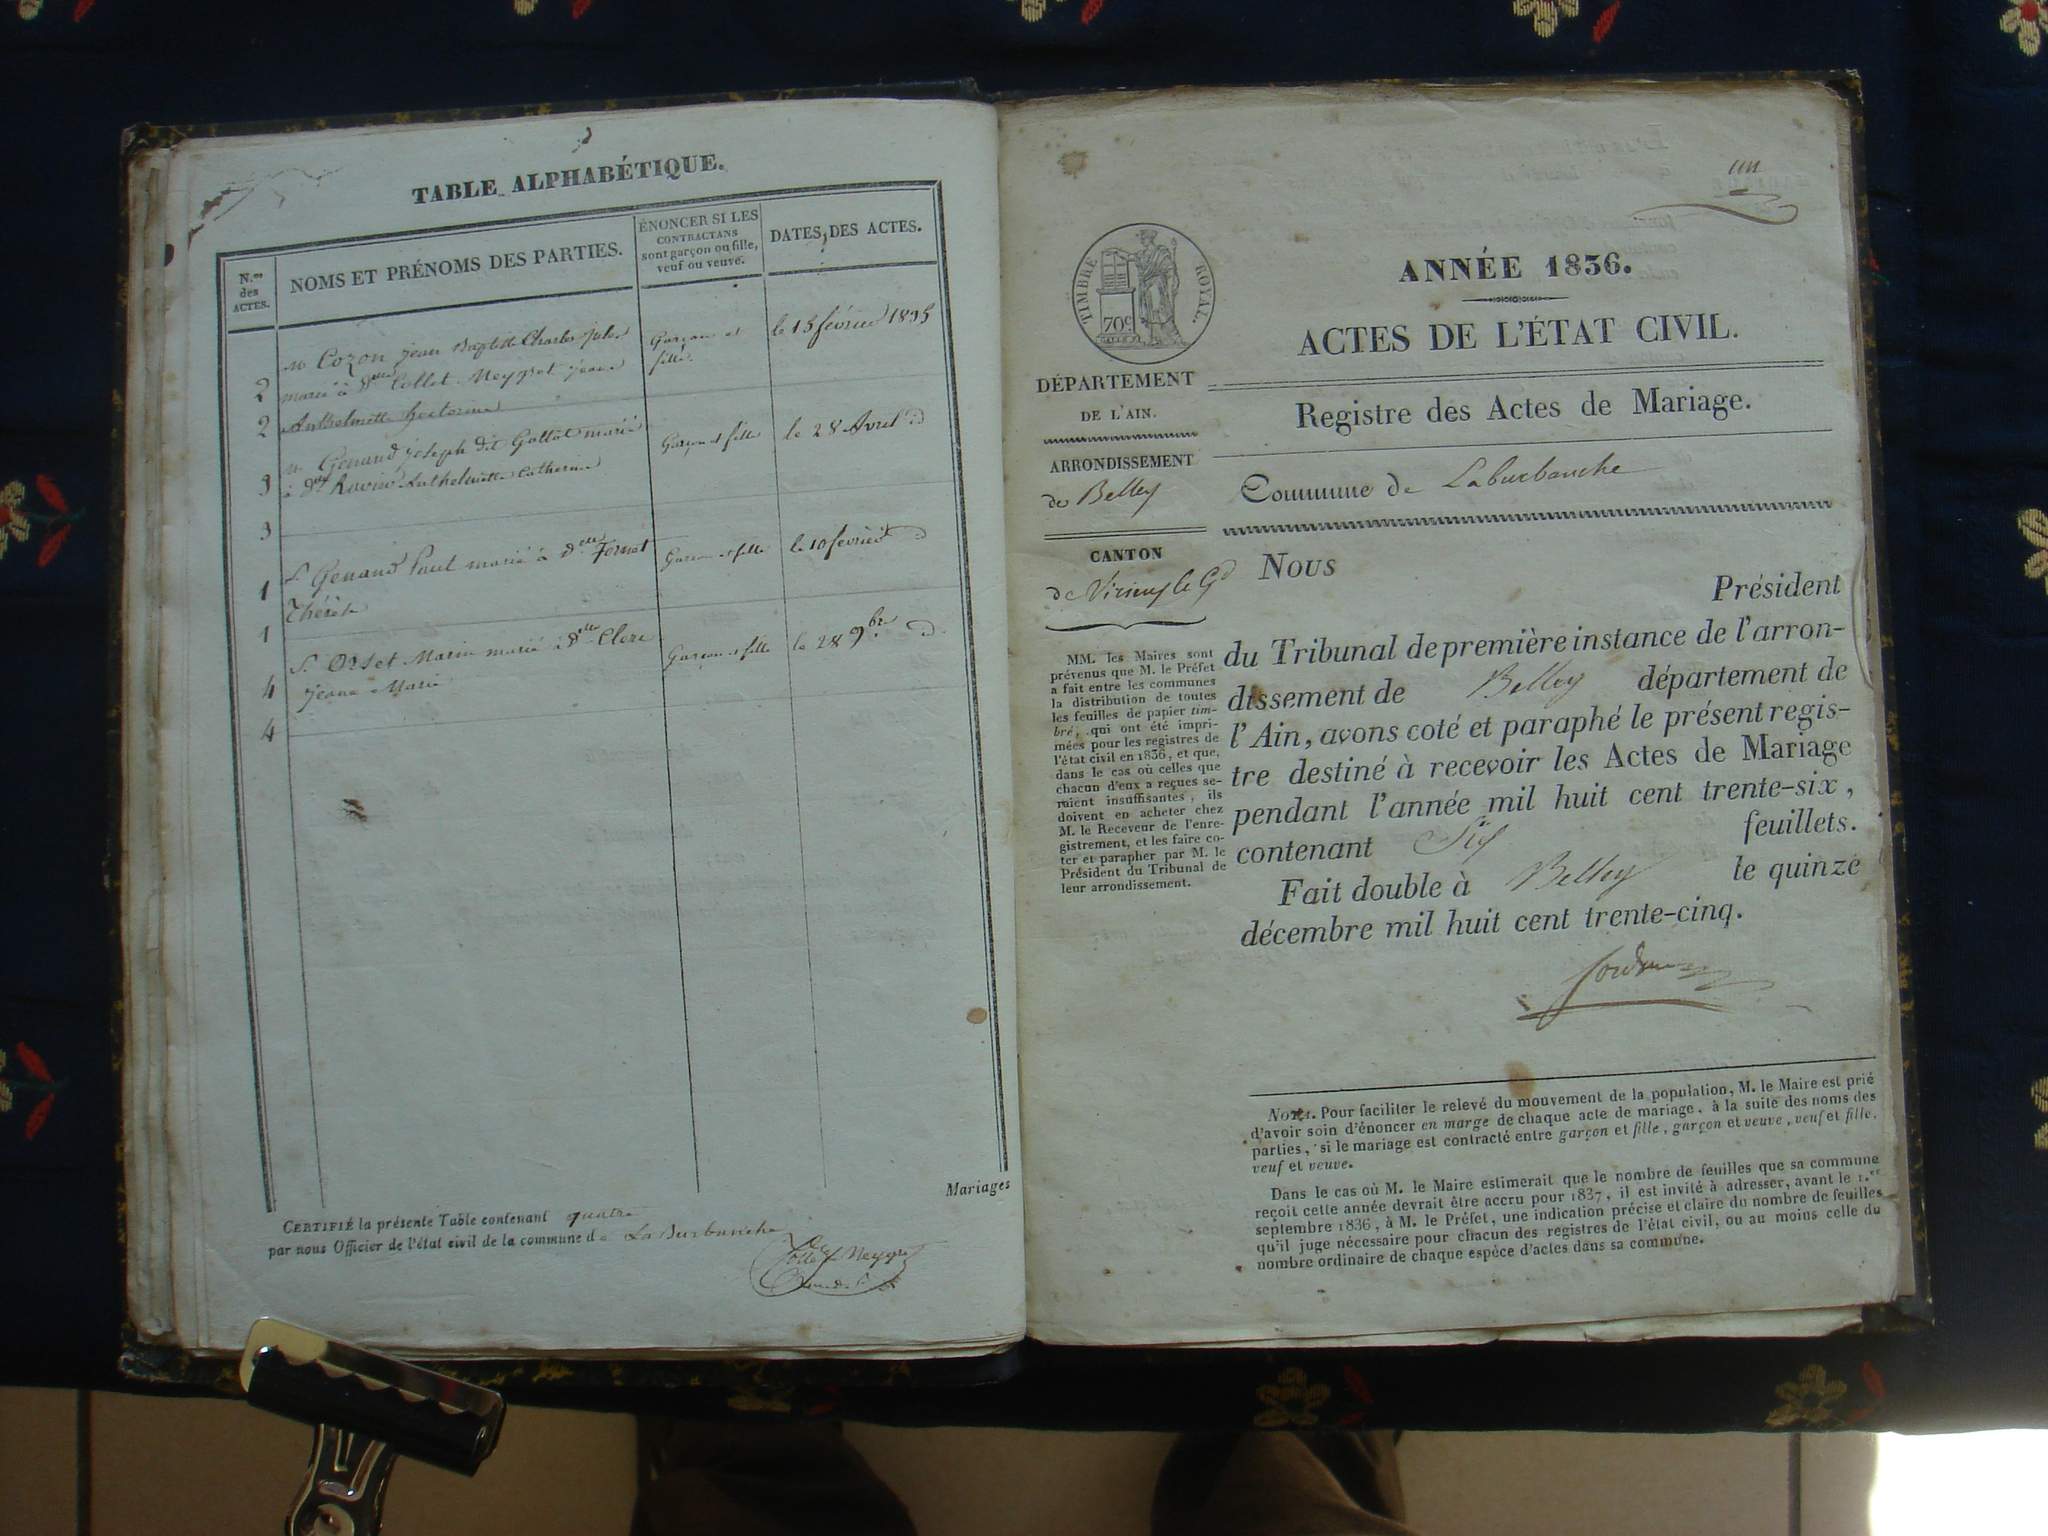 TABLE ALPHABÉTIQUE.
N.os des ACTES.
NOMS ET PRÉNOMS DES PARTIES.
ÉNONCER SI LES
CONTRACTANS
sont garçon ou fille,
veuf ou veuve.
DATES, DES ACTES.
2
m Cozon jean Baptiste Charles jules
marié à Delle Collet Meygret jeane
2
Anthelmette hectorine
Garçon et
fille
le 15 février 1835
3
Genand joseph dit Gallot marié
à Dlle Ravier Anthelmette Catherine
Garçon et fille
le 28 Avril d
3
1
Sr Genand Paul marié à delle Fernet
Thérèse
Garçon et fille
le 10 février d
1
4
Sr Orset Marin marié à Delle Clerc
jeane Marie
Garçon et fille
le 28 9bre d
4
Mariages
CERTIFIÉ la présente Table contenant quatre
par nous Officier de l'état civil de la commune de La Burbanche
Collet Meygret
un
TIMBRE ROYAL.
70c
ANNÉE 1836.
ACTES DE L'ÉTAT CIVIL.
DÉPARTEMENT
DE L'AIN.
Registre des Actes de Mariage.
ARRONDISSEMENT
de Belley
Commune de Laburbanche
CANTON
de Virieu le Gd
MM. les Maires sont
prévenus que M. le Préfet
a fait entre les communes
la distribution de toutes
les feuilles de papier tim-
bré, qui ont été impri-
mées pour les registres de
l'état civil en 1836, et que,
dans le cas où celles que
chacun d'eux a reçues se-
raient insuffisantes, ils
doivent en acheter chez
M. le Receveur de l'enre-
gistrement, et les faire co-
ter et parapher par M. le
Président du Tribunal de
leur arrondissement.
Nous
Président
du Tribunal de première instance de l'arron-
dissement de Belley département de
l'Ain, avons coté et paraphé le présent regis-
tre destiné à recevoir les Actes de Mariage
pendant l'année mil huit cent trente-six,
contenant Six feuillets.
Fait double à Belley le quinze
décembre mil huit cent trente-cinq.
NOTA. Pour faciliter le relevé du mouvement de la population, M. le Maire est prié
d'avoir soin d'énoncer en marge de chaque acte de mariage, à la suite des noms des
parties, si le mariage est contracté entre garçon et fille, garçon et veuve, veuf et fille,
veuf et veuve.
Dans le cas où M. le Maire estimerait que le nombre de feuilles que sa commune
reçoit cette année devrait être accru pour 1837, il est invité à adresser, avant le 1.er
septembre 1836, à M. le Préfet, une indication précise et claire du nombre de feuilles
qu'il juge nécessaire pour chacun des registres de l'état civil, ou au moins celle du
nombre ordinaire de chaque espèce d'actes dans sa commune.